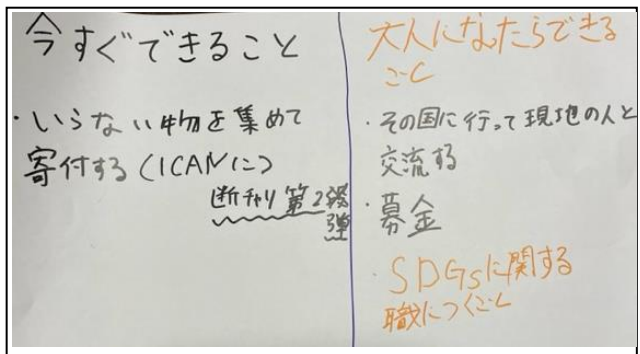 今すぐできること
・いらない物を集めて
寄付する（ICANに）
断チャリ第2弾
大人になったらできる
こと
・その国に行って現地の人と
交流する
・募金
・SDGsに関する
職につくこと